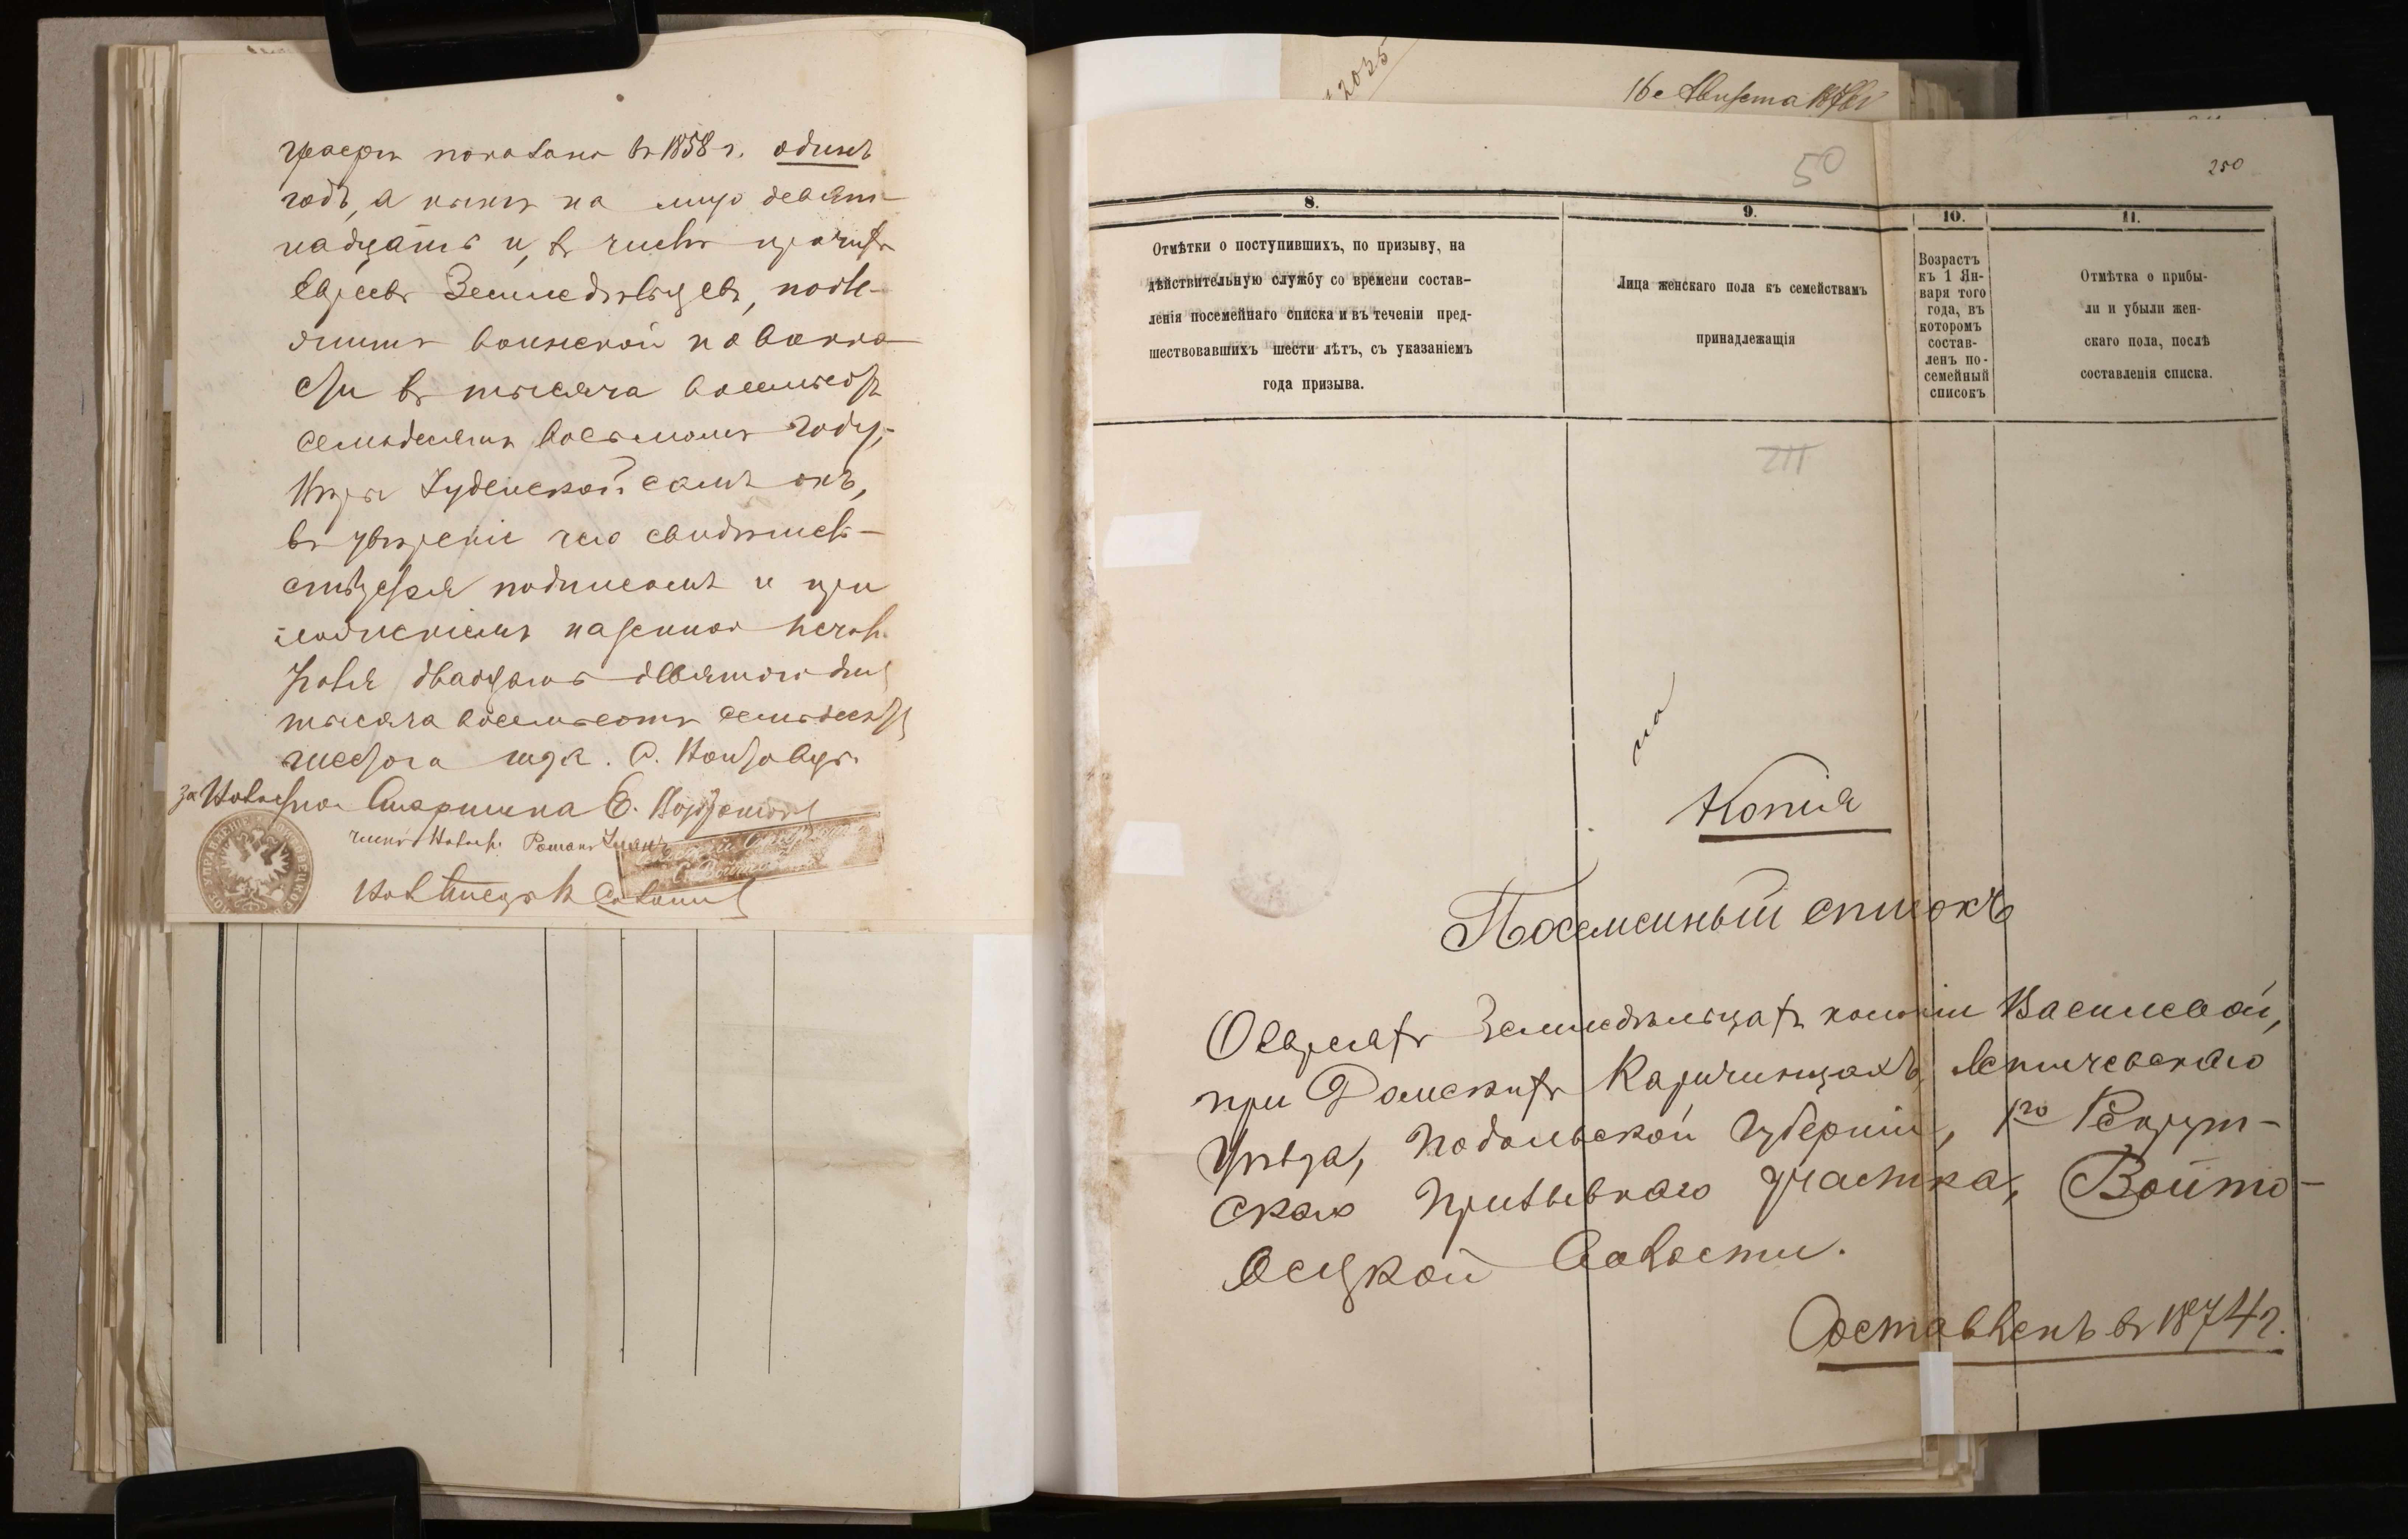 графы показано въ 1858 г. одинъ
годъ, а нынѣ на лицо девят-
надцать и, въ числѣ прочихъ
Евреевъ Земледѣльцевъ, подле-
житъ воинской повинно-
сти въ тысяча восемьсотъ
семьдесятъ восьмомъ году,
въ увѣреніе чего свидѣтель-
ствуется подписомъ и при
ложеніемъ казенной печати.
двадцать девятого дня
тысяча восемьсотъ семьдесятъ
шестого года. С.
за Волостнаго Старшина
2035
16 Августа
50
250
8.
Отмѣтки о поступившихъ, по призыву, на
дѣйствительную службу со времени состав-
ленія посемейнаго списка и въ теченіи пред-
шествовавшихъ шести лѣтъ, съ указаніемъ
года призыва.
9.
Лица женскаго пола къ семействамъ
принадлежащія
10.
Возрастъ
къ 1 Ян-
варя того
года, въ
которомъ
состав-
ленъ по-
семейный
списокъ
11.
Отмѣтка о прибы-
ли и убыли жен-
скаго пола, послѣ
составленія списка.
Копія
Посемейный списокъ
О евреяхъ Земледѣльцахъ колоніи
при Волоскихъ Каричинцахъ, Летичевскаго
Уѣзда, Подольской Губерніи, 1го Рекрут-
скаго Призывнаго участка, Войто-
вецкой Волости.
Составленъ въ 1874 г.